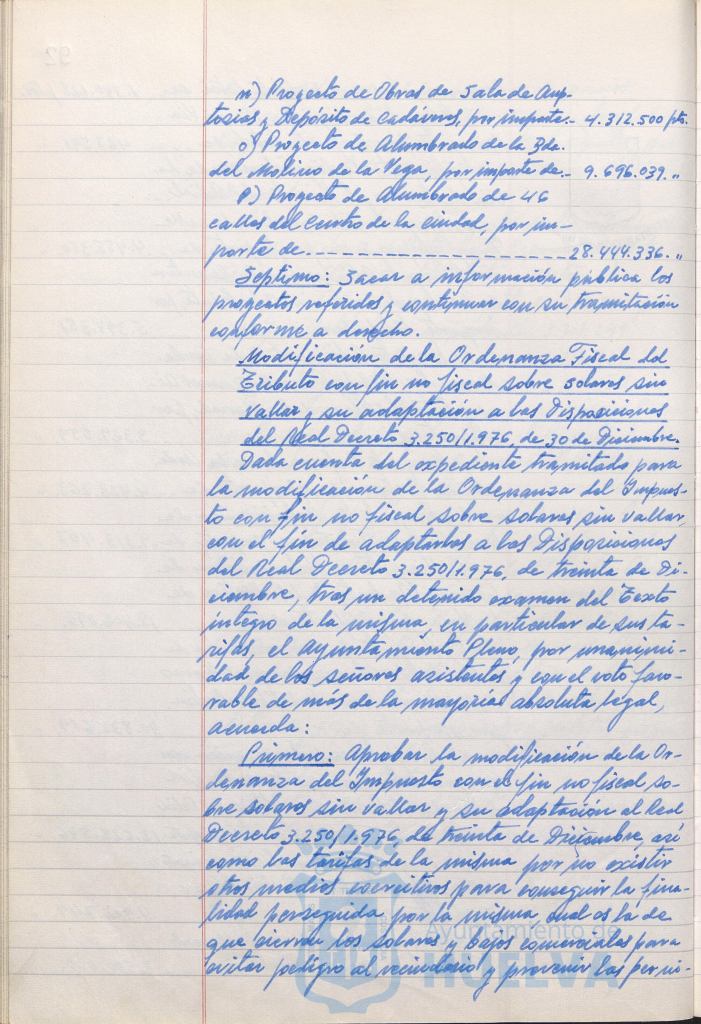 n) Proyecto de Obras de Sala de Aup-
tosias y Depósito de Cadáveres, por importe.- 4.312.500 pts.
o) Proyecto de Alumbrado de la Bda.
del Molino de la Vega, por importe de.- 9.696.039. "
p) Proyecto de Alumbrado de 46
calles del Centro de la ciudad, por im-
porte de.------------------28.444.336. "
Septimo: Sacar a información pública los
proyectos referidos y continuar con su tramitación
conforme a derecho.
Modificación de la Ordenanza Fiscal del
Tributo con fin no fiscal sobre solares sin
vallar y su adaptación a las Disposiciones
del Real Decreto 3.250/1.976, de 30 de Diciembre.
Dada cuenta del expediente tramitado para
la modificación de la Ordenanza del Impues-
to con fin no fiscal sobre solares sin vallar,
con el fin de adaptarlas a las Disposiciones
del Real Decreto 3.250/1.976, de treinta de Di-
ciembre, tras un detenido examen del Texto
íntegro de la misma, en particular de sus ta-
rifas, el Ayuntamiento Pleno, por unanimi-
dad de los señores asistentes y con el voto favo-
rable de más de la mayoría absoluta legal,
acuerda:
Primero: Aprobar la modificación de la Or-
denanza del Impuesto con el fin no fiscal so-
bre solares sin vallar y su adaptación al Real
Decreto 3.250/1.976, de treinta de Diciembre, así
como las tarifas de la misma por no existir
otros medios coercitivos para conseguir la fina-
lidad perseguida por la misma, cual es la de
que cierren los solares y bajos comerciales para
evitar peligro al vecindario y prevenir las perni-
Ayuntamiento de
HUELVA